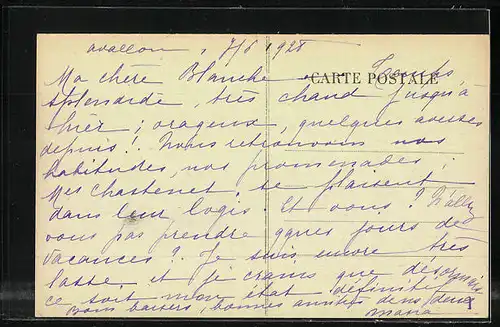 avallon, 7/6 1928
CARTE POSTALE
Ma chère Blanche - Temps
splendide, très chaud jusqu'à
hier; orageux, quelques averses
depuis!. Nous retrouvons nos
habitudes, nos promenades;
Mes Chastenet se plaisent
dans leur logis. Et vous? N'allez
vous pas prendre qques jours de
vacances? Je suis encore très
lasse et je crains que désormais
ce soit mon état définitif
Bons baisers, bonnes amitiés de nous deux
Maria